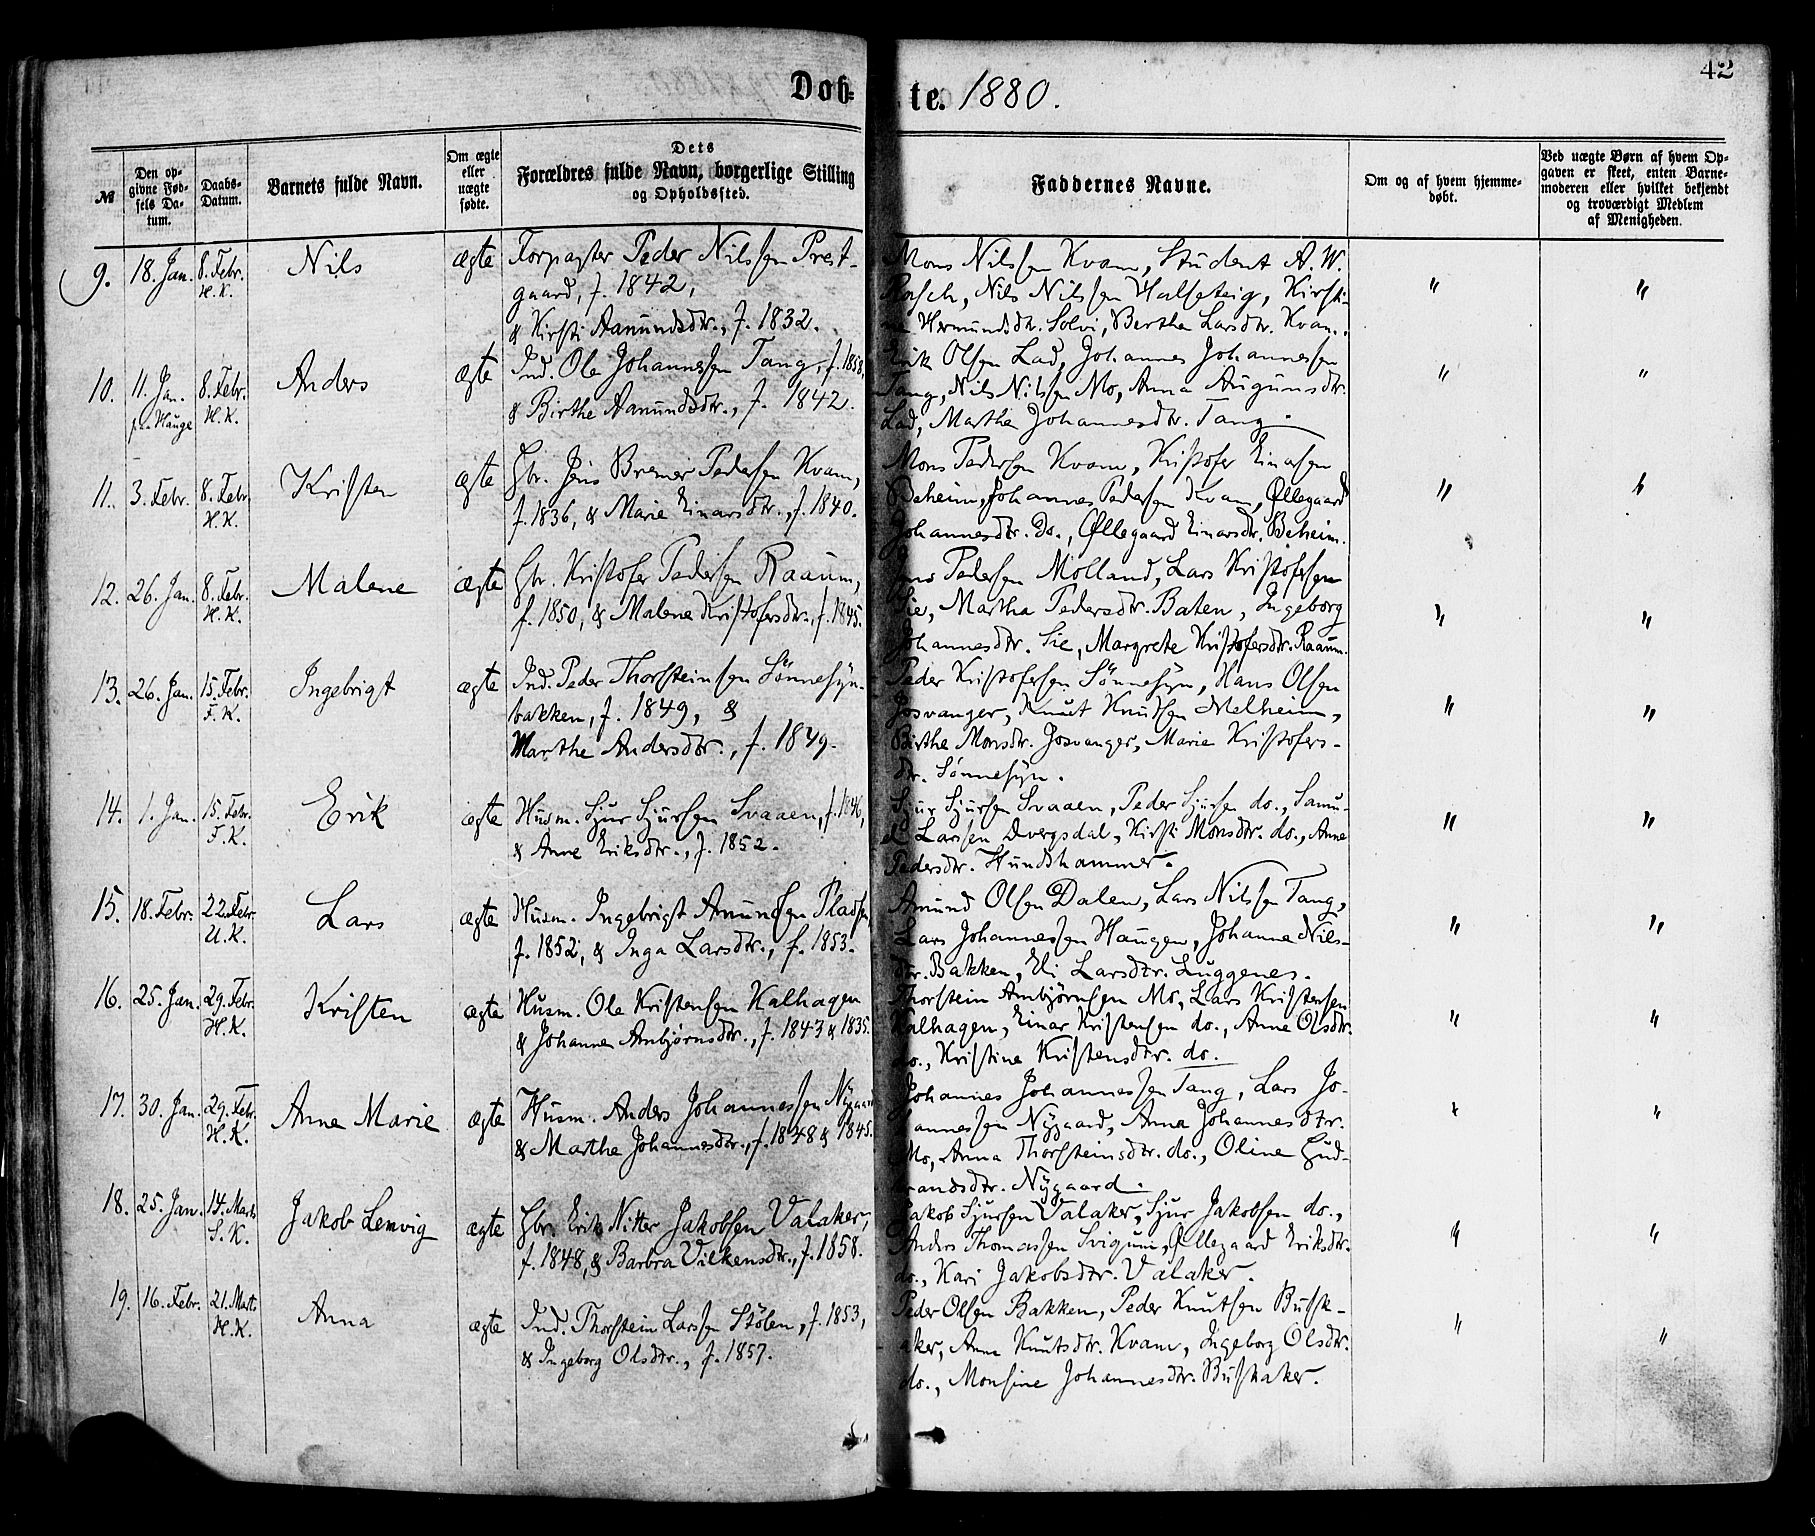 42
Døbte. 1880.
№
Den opgivne Fødsels Datum.
Daabs-Datum.
Barnets fulde Navn.
Om ægte eller uægte fødte.
Dets Forældres fulde Navn, borgerlige Stilling og Opholdssted.
Faddernes Navne.
Om og af hvem hjemmedøbt.
Ved uægte Børn af hvem Opgaven er skeet, enten Barnemoderen eller hvilket bekjendt og troværdigt Medlem af Menigheden.
9. 18. Jan. 8. Febr. H.K. Nils ægte
Forpagter Peder Nilssen Prest-
gaard, f. 1842,
& Kirsti Aamundsdtr., f. 1832.
Mons Nilssen Kvam, Student A. W.
Rosch, Nils Nilssen Halseteig, Kirsti-
Hermundsdtr. Solvi, Berthe Larsdtr. Kvam.
" "
10. 11. Jan. Hauge 8. Febr. H.K. Anders ægte
Ind. Ole Johannessen Tang, f. 1858,
& Birthe Aamundsdtr., f. 1842.
Erik Olsen Lad, Johannes Johannessen
Tang, Nils Nilssen Mo, Anna Augunsdtr.
Lad, Marthe Johannesdtr. Tang.
" "
11. 3. Febr. 8. Febr. H.K. Kristen ægte
Gbr. Jens Bremer Pedersen Kvam,
f. 1836, & Marie Einarsdtr., f. 1840.
Mons Pedersen Kvam, Kristofer Einarsen
Beheim, Johannes Pedersen Kvam, Øllegaard
Johannesdtr. Do., Øllegaard Einarsdtr. Beheim.
" "
12. 26. Jan. 8. Febr. H.K. Malene ægte
Gbr. Kristofer Pedersen Raaum,
f. 1850, & Malene Kristofersdtr., f. 1845.
Jens Pedersen Molland, Lars Kristofersen
Sie, Martha Pedersdtr. Baten, Ingeborg
Johannesdtr. Sie, Margrete Kristofersdtr. Raaum.
" "
13. 26. Jan. 15. Febr. F.K. Ingebrigt ægte
Ind. Peder Thorsteinsen Sønnesyn-
bakken, f. 1849, &
Marthe Andersdtr., f. 1849.
Peder Kristofersen Sønnesyn, Hans Olsen
Josvanger, Knut Knutsen Melheim,
Birthe Monsdtr. Josvanger, Marie Kristofers-
dtr. Sønnesyn.
" "
14. 1. Jan. 15. Febr. F.K. Erik ægte
Husm. Sjur Sjursen Svaaen, f. 1846,
& Anne Eriksdtr., f. 1852.
Sjur Sjursen Svaaen, Peder Sjursen do., Samu-
el Larsen Dvergsdal, Kirsti Monsdtr. do., Anne
Pedersdtr. Hundshammer.
" "
15. 18. Febr. 22. Febr. U.K. Lars ægte
Husm. Ingebrigt Amundsen Pladsen,
f. 1852, & Inga Larsdtr., f. 1853.
Amund Olsen Dalen, Lars Nilssen Tang,
Lars Johannessen Haugen, Johanne Nils-
dtr. Bakken, Eli Larsdtr. Luggenes.
" "
16. 25. Jan. 29. Febr. H.K. Kristen ægte
Husm. Ole Kristensen Kalhagen
& Johanne Ambjørnsdtr., f. 1843 & 1835.
Thorstein Ambjørnsen Mo, Lars Kristensen
Kalhagen, Einar Kristensen do., Anne Olsdtr.
do., Kristine Kristensdtr. do.
" "
17. 30. Jan. 29. Febr. H.K. Anne Marie ægte
Husm. Anders Johannessen Nygaard
& Marthe Johannesdtr., f. 1848 & 1845.
Johannes Johannessen Tang, Lars Jo-
hannessen Nygaard, Anna Johannesdtr.
Mo, Anna Thorsteinsdtr. do., Oline Gud-
brandsdtr. Nygaard.
" "
18. 25. Jan. 14. Marts S.K. Jakob Lemvig ægte
Gbr. Erik Nitter Jakobsen Valaker,
f. 1848, & Barbra Vilkensdtr., f. 1858.
Jakob Sjursen Valaker, Sjur Jakobsen do.,
Anders Thomassen Svigum, Øllegaard Eriksdtr.
do., Kari Jakobsdtr. Valaker.
" "
19. 16. Febr. 21. Marts H.K. Anna ægte
Ind. Thorstein Larssen Stølen, f. 1853,
& Ingeborg Olsdtr., f. 1857.
Peder Olsen Bakken, Peder Knutsen Busk-
aker, Anne Knutsdtr. Kvam, Ingeborg Olsdtr.
do., Monsine Johannesdtr. Buskaker.
" "